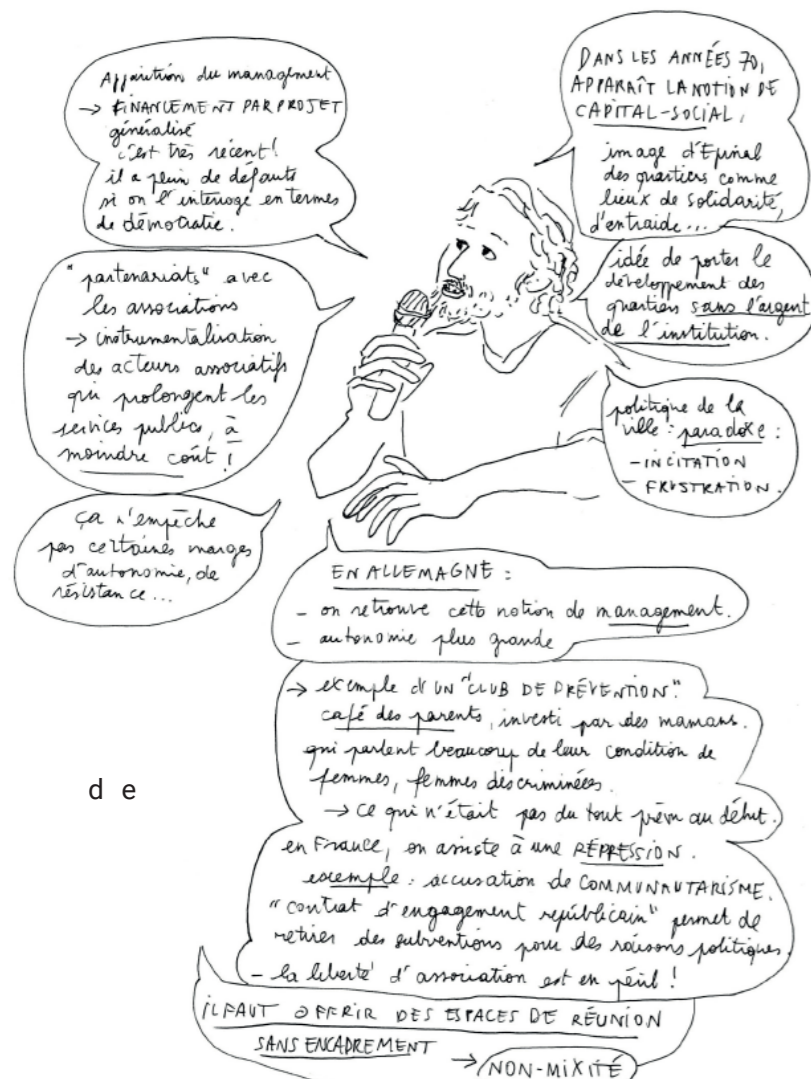 Apparition du management
→ FINANCEMENT PAR PROJET
généralisé
c'est très récent !
il a plein de défauts
si on l'interroge en termes
de démocratie.
"partenariats" avec
les associations
→ instrumentalisation
des acteurs associatifs
qui prolongent les
services publics, à
moindre coût !
ça n'empêche
pas certaines marges
d'autonomie, de
résistance...
DANS LES ANNÉES 70,
APPARAÎT LA NOTION DE
CAPITAL-SOCIAL,
image d'Epinal
des quartiers comme
lieux de solidarité,
d'entraide...
idée de porter le
développement des
quartiers sans l'argent
de l'institution.
politique de la
ville : paradoxe :
- INCITATION
- FRUSTRATION.
EN ALLEMAGNE :
- on retrouve cette notion de management.
- autonomie plus grande
→ exemple d'UN "CLUB DE PRÉVENTION".
café des parents, investi par des mamans.
qui parlent beaucoup de leur condition de
femmes, femmes discriminées.
→ ce qui n'était pas du tout prévu au début.
en France, on assiste à une RÉPRESSION.
exemple : accusation de COMMUNAUTARISME.
"contrat d'engagement républicain" permet de
retirer des subventions pour des raisons politiques.
- la liberté d'association est en péril !
IL FAUT OFFRIR DES ESPACES DE RÉUNION
SANS ENCADREMENT
→ NON-MIXITÉ
d e